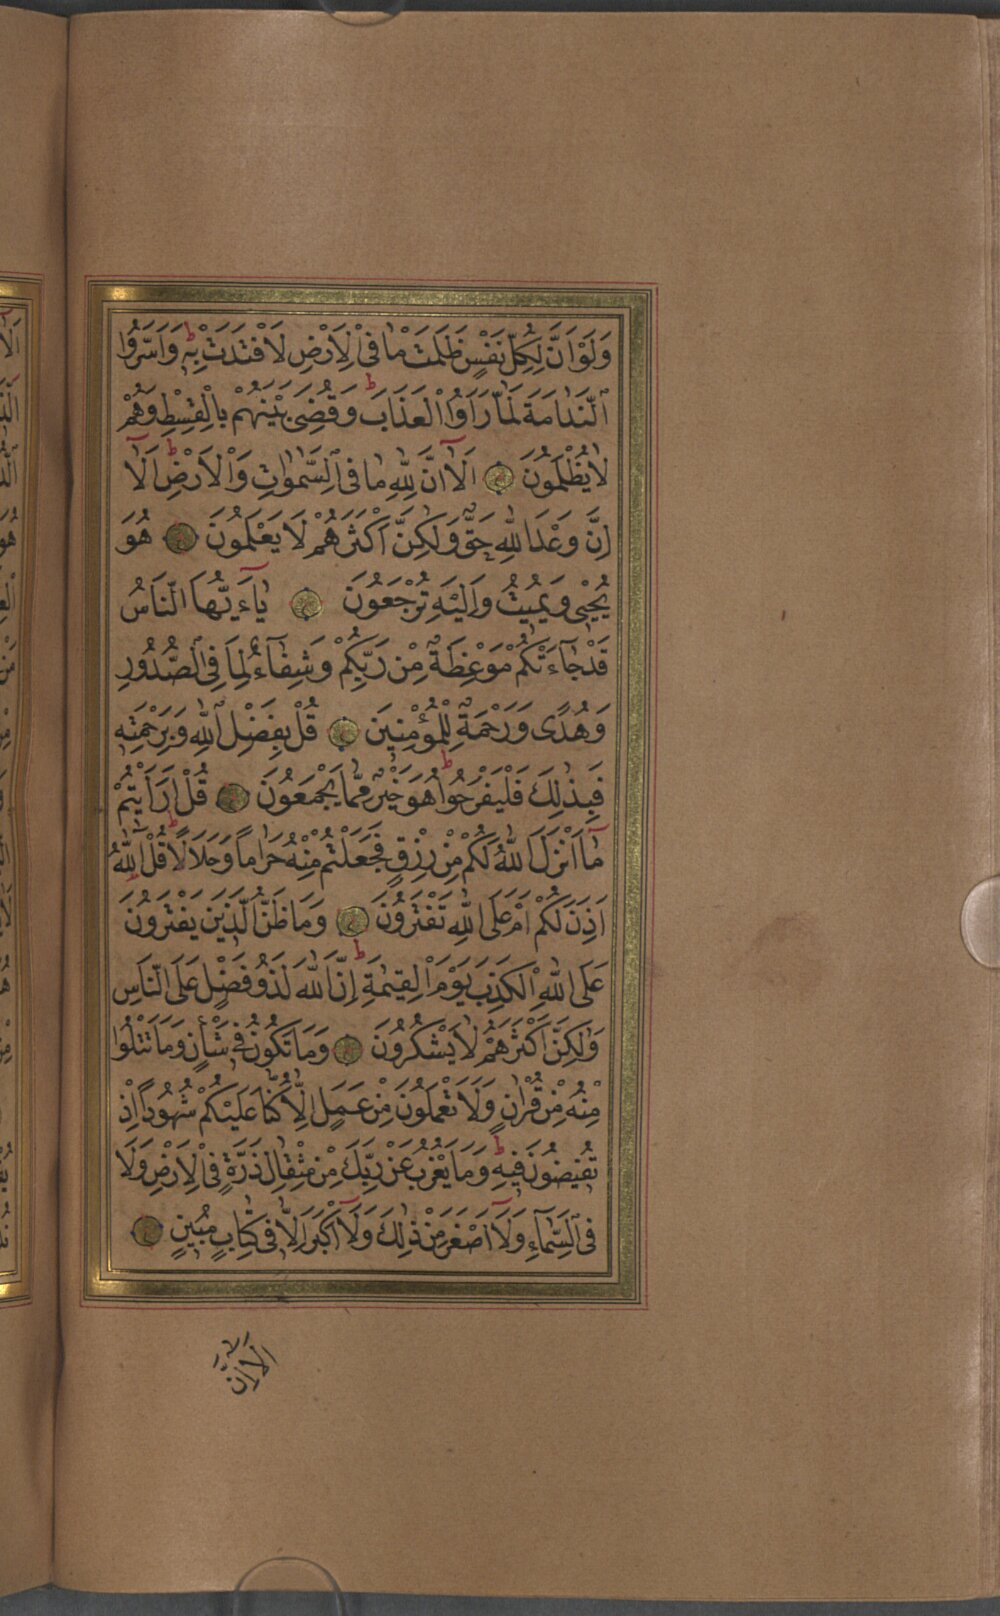 وَلَوْ اَنَّ لِكُلِّ نَفْسٍ ظَلَمَتْ مَا فِي الْاَرْضِ لَافْتَدَتْ بِهٖ وَاَسَرُّوا
النَّدَامَةَ لَمَّا رَاَوُا الْعَذَابَ وَقُضِيَ بَيْنَهُمْ بِالْقِسْطِ وَهُمْ
لَا يُظْلَمُونَ اَلَٓا اِنَّ لِلّٰهِ مَا فِي السَّمٰوَاتِ وَالْاَرْضِ اَلَٓا
اِنَّ وَعْدَ اللّٰهِ حَقٌّ وَلٰكِنَّ اَكْثَرَهُمْ لَا يَعْلَمُونَ هُوَ
يُحْيِي وَيُمِيتُ وَاِلَيْهِ تُرْجَعُونَ يَٓا ءَيُّهَا النَّاسُ
قَدْ جَٓاءَتْكُمْ مَوْعِظَةٌ مِنْ رَبِّكُمْ وَشِفَٓاءٌ لِمَا فِي الصُّدُورِ
وَهُدًى وَرَحْمَةٌ لِلْمُؤْمِنِينَ قُلْ بِفَضْلِ اللّٰهِ وَبِرَحْمَتِهٖ
فَبِذٰلِكَ فَلْيَفْرَحُوا هُوَ خَيْرٌ مِمَّا يَجْمَعُونَ قُلْ اَرَاَيْتُمْ
مَٓا اَنْزَلَ اللّٰهُ لَكُمْ مِنْ رِزْقٍ فَجَعَلْتُمْ مِنْهُ حَرَامًا وَحَلَالًا قُلْ آللّٰهُ
اَذِنَ لَكُمْ اَمْ عَلَى اللّٰهِ تَفْتَرُونَ وَمَا ظَنُّ الَّذِينَ يَفْتَرُونَ
عَلَى اللّٰهِ الْكَذِبَ يَوْمَ الْقِيٰمَةِ اِنَّ اللّٰهَ لَذُو فَضْلٍ عَلَى النَّاسِ
وَلٰكِنَّ اَكْثَرَهُمْ لَا يَشْكُرُونَ وَمَا تَكُونُ فِي شَأْنٍ وَمَا تَتْلُوا
مِنْهُ مِنْ قُرْاٰنٍ وَلَا تَعْمَلُونَ مِنْ عَمَلٍ اِلَّا كُنَّا عَلَيْكُمْ شُهُودًا اِذْ
تُفِيضُونَ فِيهِ وَمَا يَعْزُبُ عَنْ رَبِّكَ مِنْ مِثْقَالِ ذَرَّةٍ فِي الْاَرْضِ وَلَا
فِي السَّمَٓاءِ وَلَٓا اَصْغَرَ مِنْ ذٰلِكَ وَلَٓا اَكْبَرَ اِلَّا فِي كِتَابٍ مُبِينٍ
اَلَا اِنَّ